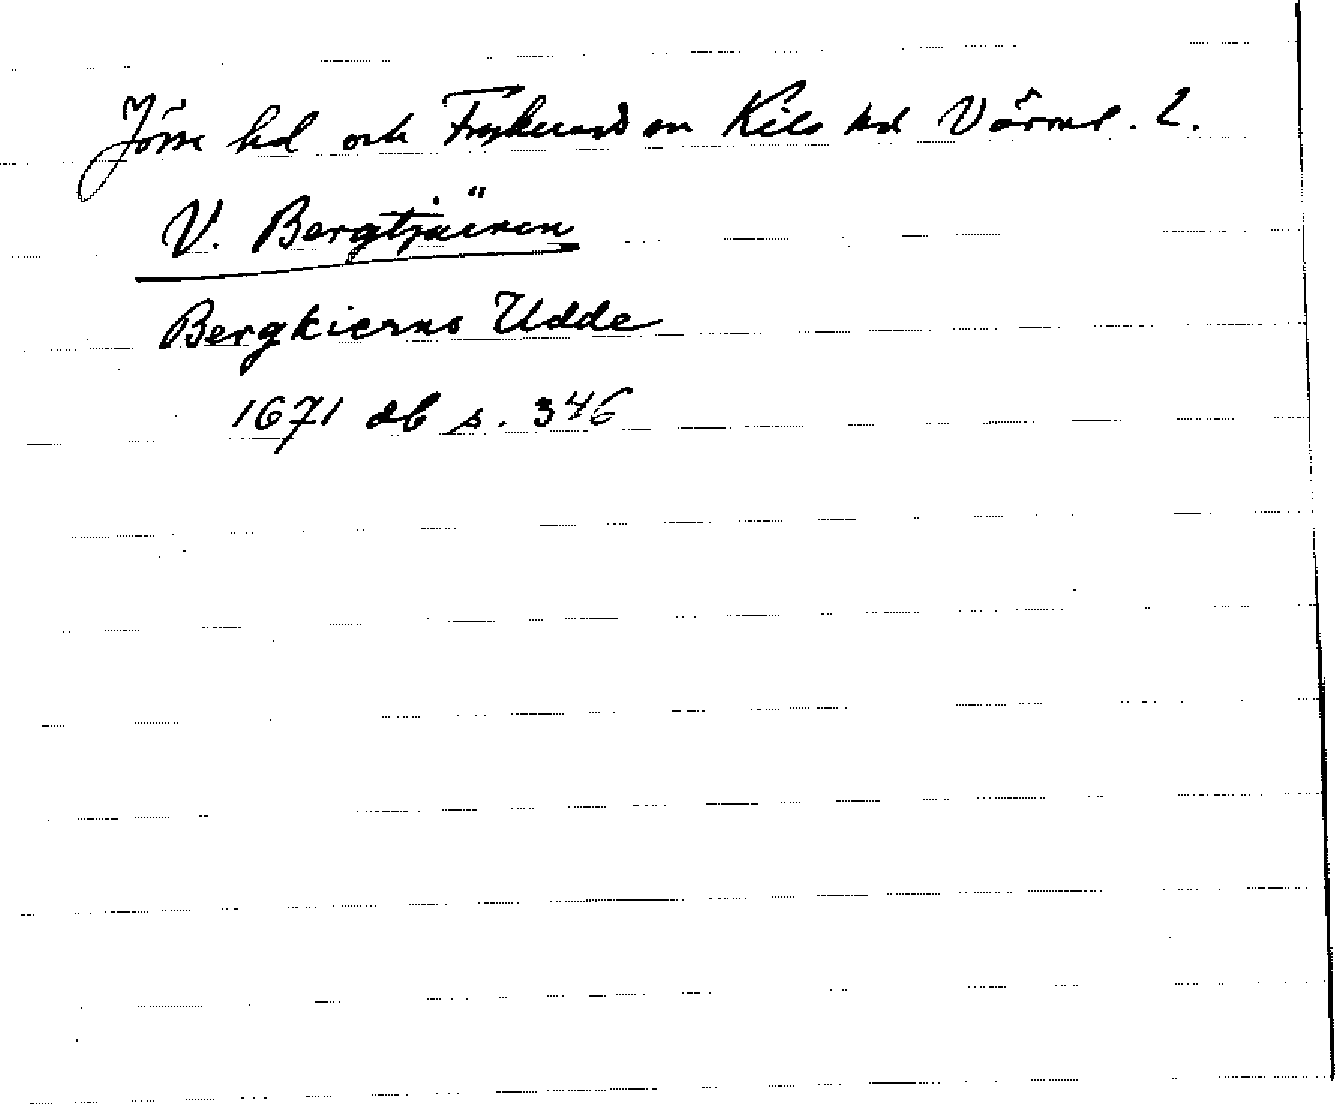 Jösse hd och Frykerud sn Kils hd Värml. l.
V. Bergtjärnen
Bergkierns Udde
1671 db s. 346